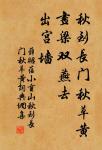 秋到长门秋草黄
画梁双燕去
出宫墙
薛昭蕴小重山秋到长
门秋草黄词典网集